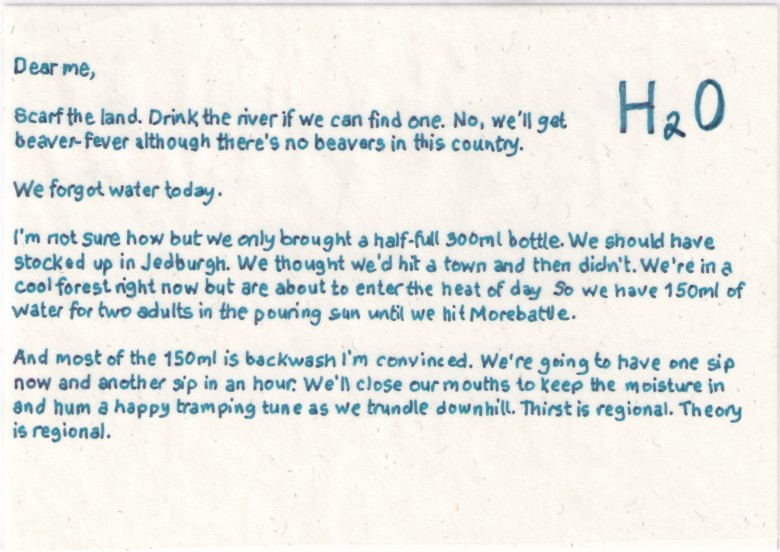 Dear me,
H2O
Scarf the land. Drink the river if we can find one. No, we'll get
beaver-fever although there's no beavers in this country.
We forgot water today.
I'm not sure how but we only brought a half-full 300ml bottle. We should have
stocked up in Jedburgh. We thought we'd hit a town and then didn't. We're in a
cool forest right now but are about to enter the heat of day So we have 150ml of
water for two adults in the pouring sun until we hit Morebattle.
And most of the 150ml is backwash I'm convinced. We're going to have one sip
now and another sip in an hour. We'll close our mouths to keep the moisture in
and hum a happy tramping tune as we trundle downhill. Thirst is regional. Theory
is regional.